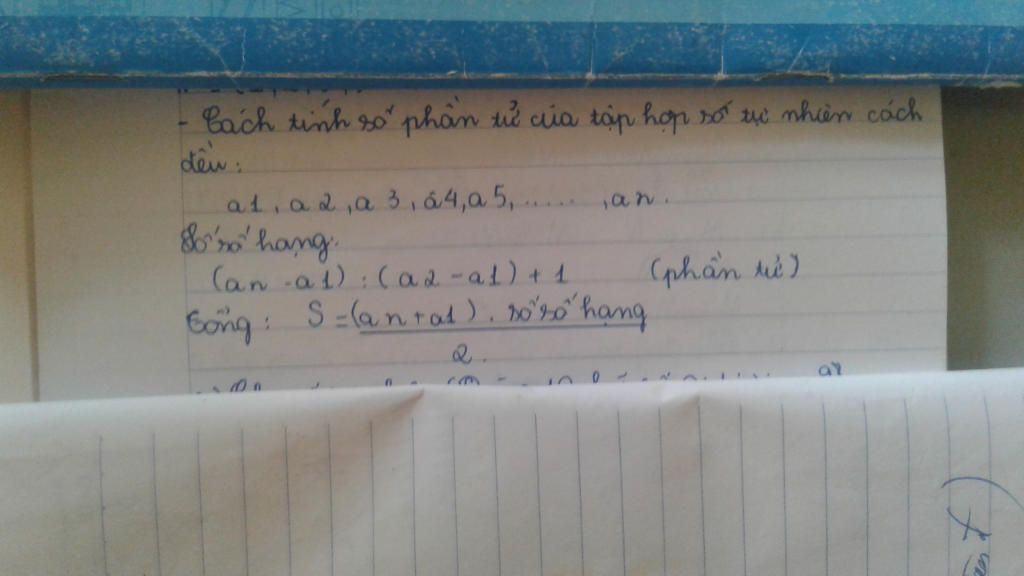 - Cách tính số phần tử của tập hợp số tự nhiên cách
đều:
a1, a2, a3, a4, a5, ....., an.
Số số hạng:
(an - a1) : (a2 - a1) + 1 (phần tử)
Tổng: S = (an + a1) . số số hạng
2.